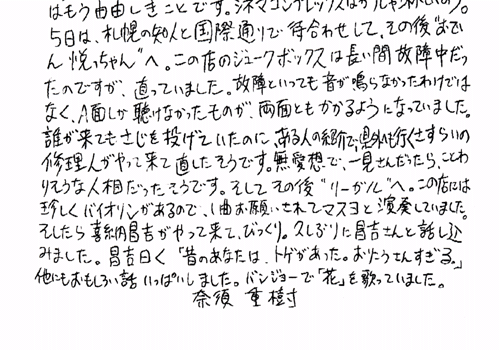 はもう由由しきことです。シネマコンプレックスは
5日は、札幌の知人と国際通りで待合わせして、その後"おで
ん悦っちゃん"へ。この店のジュークボックスは長い間故障中だっ
たのですが、直っていました。故障といっても音が鳴らなかったわけでは
なく、A面しか聴けなかったものが、両面ともかかるようになっていました。
誰が来てもさじを投げていたのに、ある人の紹介で、県外も行くさすらいの
修理人がやって来て直したそうです。無愛想で、一見さんだったら、ことわ
りそうな人相だったそうです。そしてその後"リーガル"へ。この店には
珍しくバイオリンがあるので、1曲お願いされてマスヨと演奏していました。
そしたら喜納昌吉がやって来て、びっくり。久しぶりに昌吉さんと話し込
みました。昌吉曰く「昔のあなたは、トゲがあった。おりこうさんすぎる。」
他にもおもしろい話いっぱいしました。バンジョーで「花」を歌っていました。
奈須 重樹